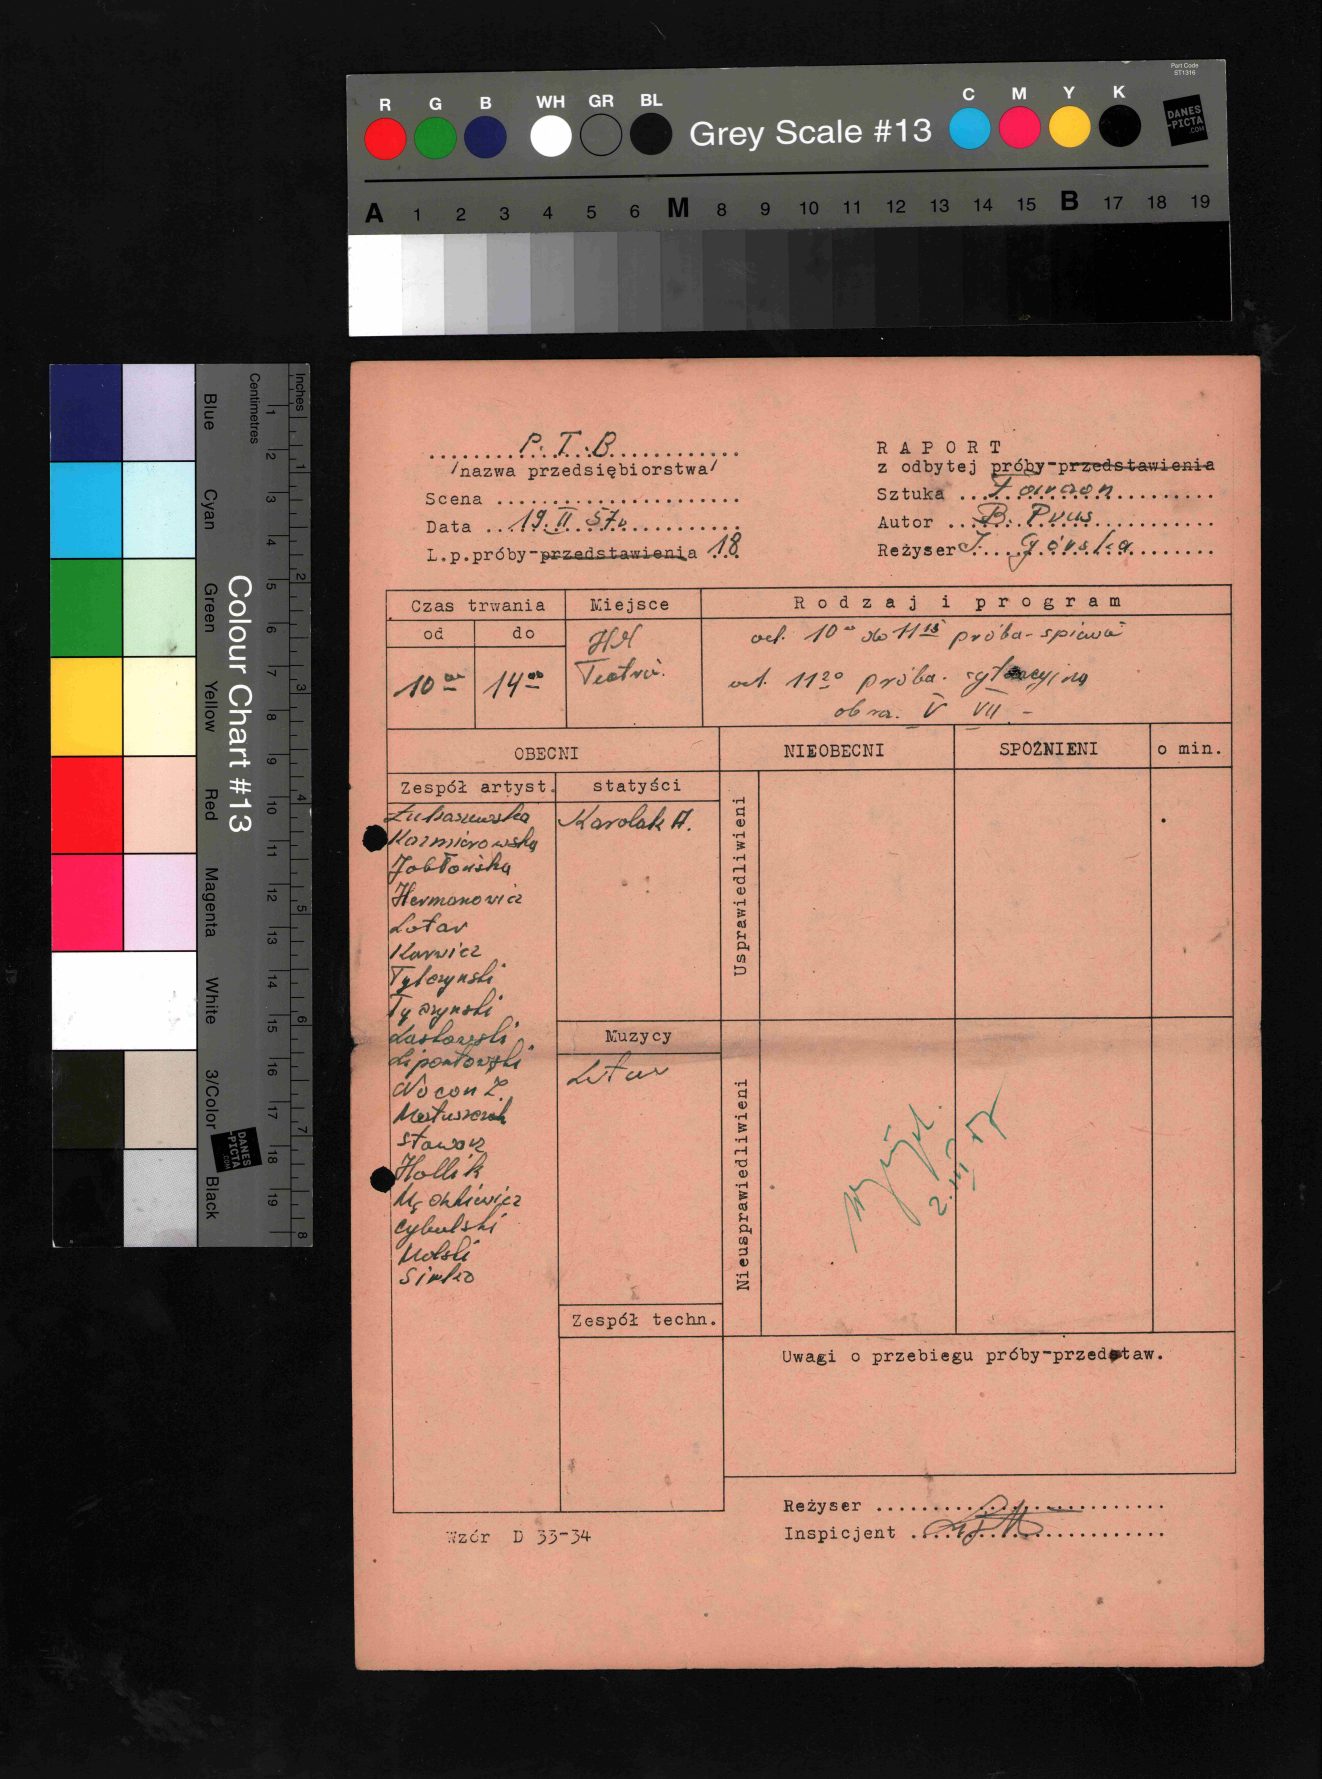 Part Code
ST1316
R G B WH GR BL Grey Scale #13 C M Y K
DANES
-PICTA
.COM
A 1 2 3 4 5 6 M 8 9 10 11 12 13 14 15 B 17 18 19
Colour Chart #13
Blue Cyan Green Yellow Red Magenta White 3/Color Black
Centimetres 1 2 3 4 5 6 7 8 9 10 11 12 13 14 15 16 17 18 19
Inches 1 2 3 4 5 6 7 8
DANES
-PICTA
.COM
P.T.B
/nazwa przedsiębiorstwa/
Scena
Data 19.II 57r
L.p.próby-przedstawienia 18
RAPORT
z odbytej próby-przedstawienia
Sztuka Faraon
Autor B. Prus
Reżyser J. Górska
Czas trwania Miejsce Rodzaj i program
od do
10 00 14 00
Teatru.
od. 10 00 do 11 15 próba-
od. 11 20 próba. sytuacyjna
obra. V VII -
OBECNI NIEOBECNI SPÓŹNIENI o min.
Zespół artyst. statyści
Łukaszewska
Kazmierowska
Jabłońska
Hermanowicz
Lotar
Karwicz
Tylczynski
Tyczynski
Laskowski
Lipowłowski
Wocon Z.
Matuszczak
Stawarz
Hollik
Cybulski
Molski
Simlco
Karolak A.
Usprawiedliwieni
Muzycy
Nieusprawiedliwieni
2.III 57
Zespół techn.
Uwagi o przebiegu próby-przedstaw.
Reżyser
Inspicjent
Wzór D 33-34